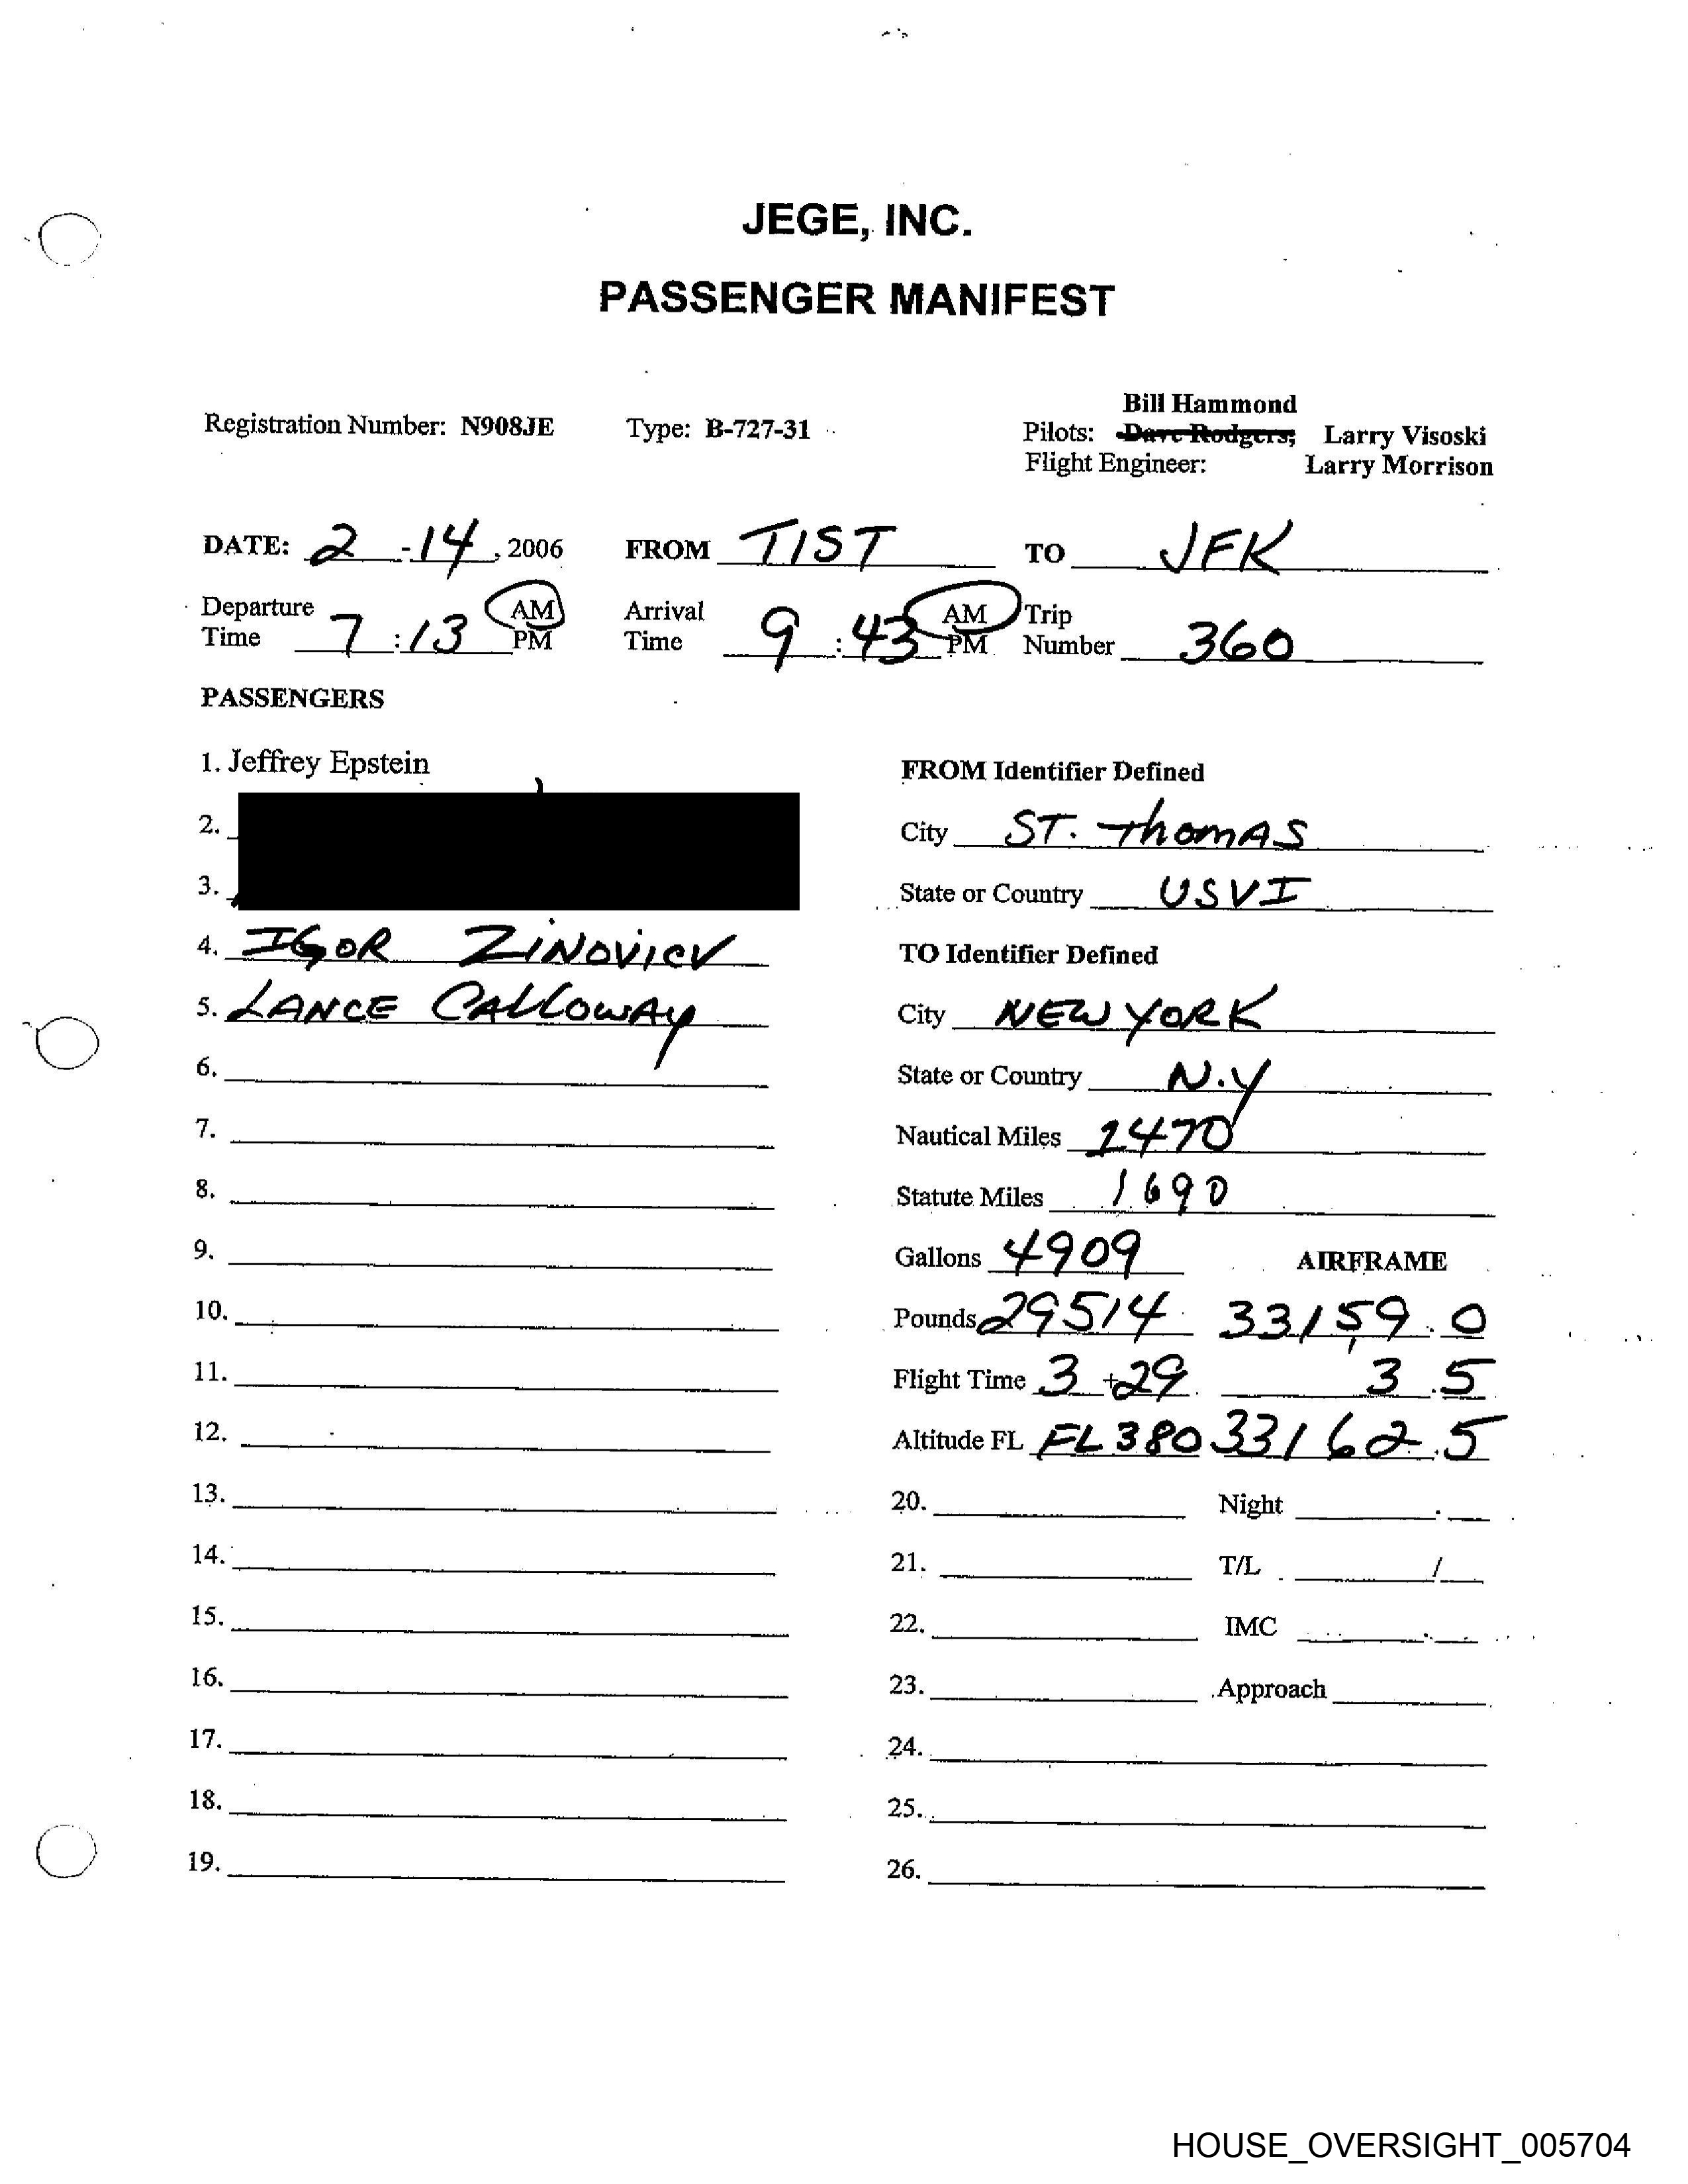 JEGE, INC.
PASSENGER MANIFEST
Bill Hammond
Registration Number: N908JE Type: B-727-31 Pilots: Dave Rodgers; Larry Visoski
Flight Engineer: Larry Morrison
DATE: 2-14, 2006 FROM TIST TO JFK
Departure Time 7:13 AM PM Arrival Time 9:43 AM PM Trip Number 360
PASSENGERS
1. Jeffrey Epstein
2.
3.
4. IGOR ZINOVIEV
5. LANCE CALLOWAY
6.
7.
8.
9.
10.
11.
12.
13.
14.
15.
16.
17.
18.
19.
FROM Identifier Defined
City ST. ThomAS
State or Country USVI
TO Identifier Defined
City NEW YORK
State or Country N.Y
Nautical Miles 1470
Statute Miles 1690
Gallons 4909 AIRFRAME
Pounds 29514 33159.0
Flight Time 3+29 3.5
Altitude FL FL380 33162.5
20. Night .
21. T/L /
22. IMC .
23. Approach
24.
25.
26.
HOUSE_OVERSIGHT_005704